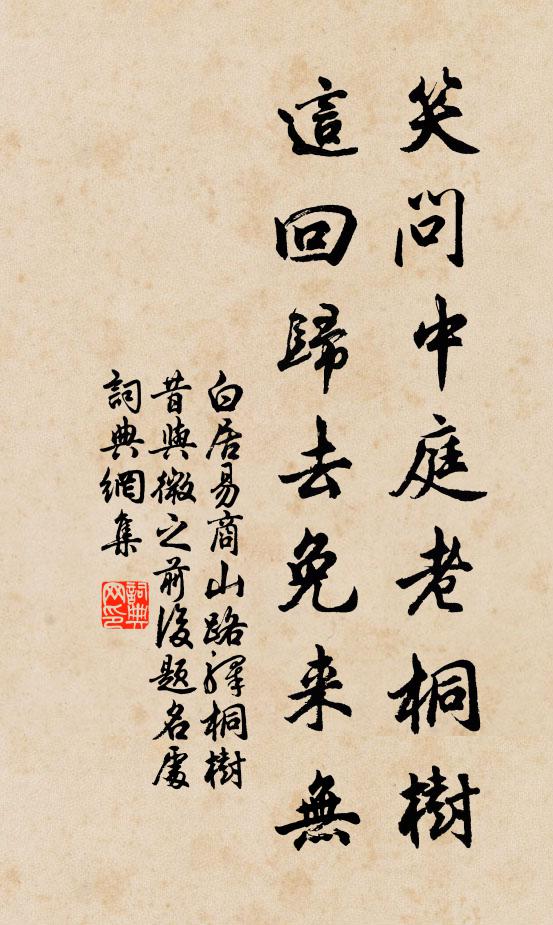 笑問中庭老桐樹
這回歸去免来無
白居易商山路驛桐樹
昔與微之前後題名處
詞典網集
詞典網印